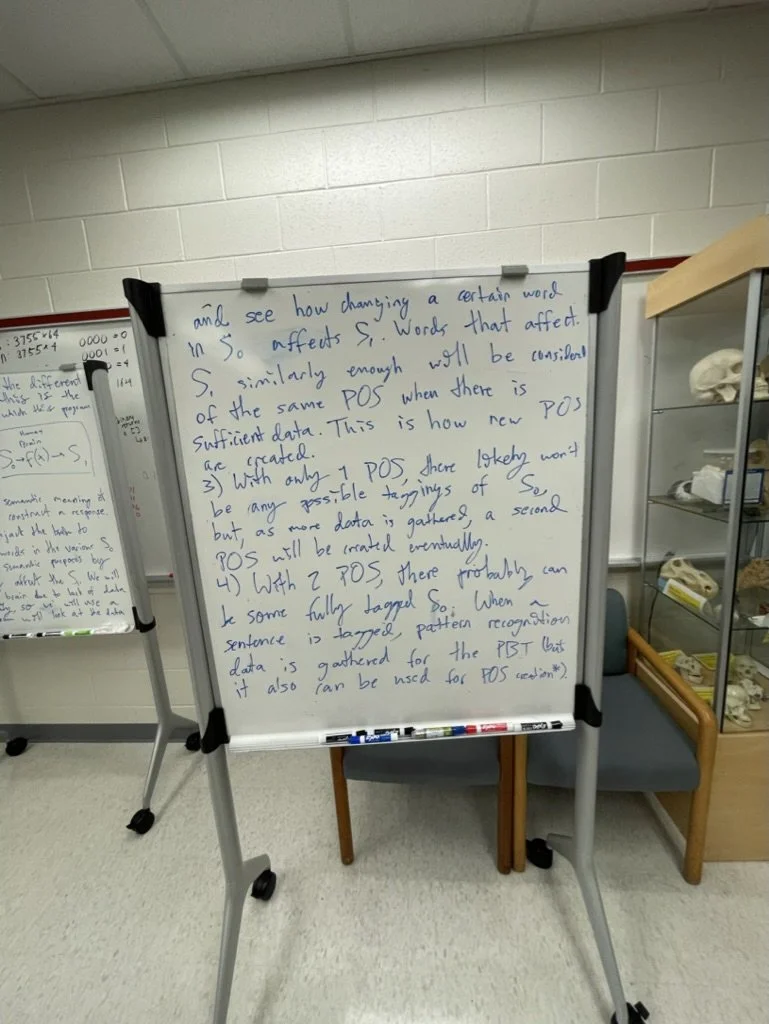 and see how changing a certain word
in S₀ affects S₁. Words that affect
S₁ similarly enough will be considered
of the same POS when there is
sufficient data. This is how new POS
are created.
3) With only 1 POS, there likely won't
be any possible taggings of S₀,
but, as more data is gathered, a second
POS will be created eventually.
4) With 2 POS, there probably can
be some fully tagged S₀. When a
sentence is tagged, pattern recognition
data is gathered for the PBT (but
it also can be used for POS creation*).
: 3755×64
n 3755×4
0000 = 0
0001 = 1
= 4
the different
this is the
which this program
Human
Brain
S₀→f(x)→S₁
semantic meaning of
construct a response.
the
words in the various S₀
semantic purposes by
affect the S₁. We will
brain due to lack of data
so will use a
look at the data